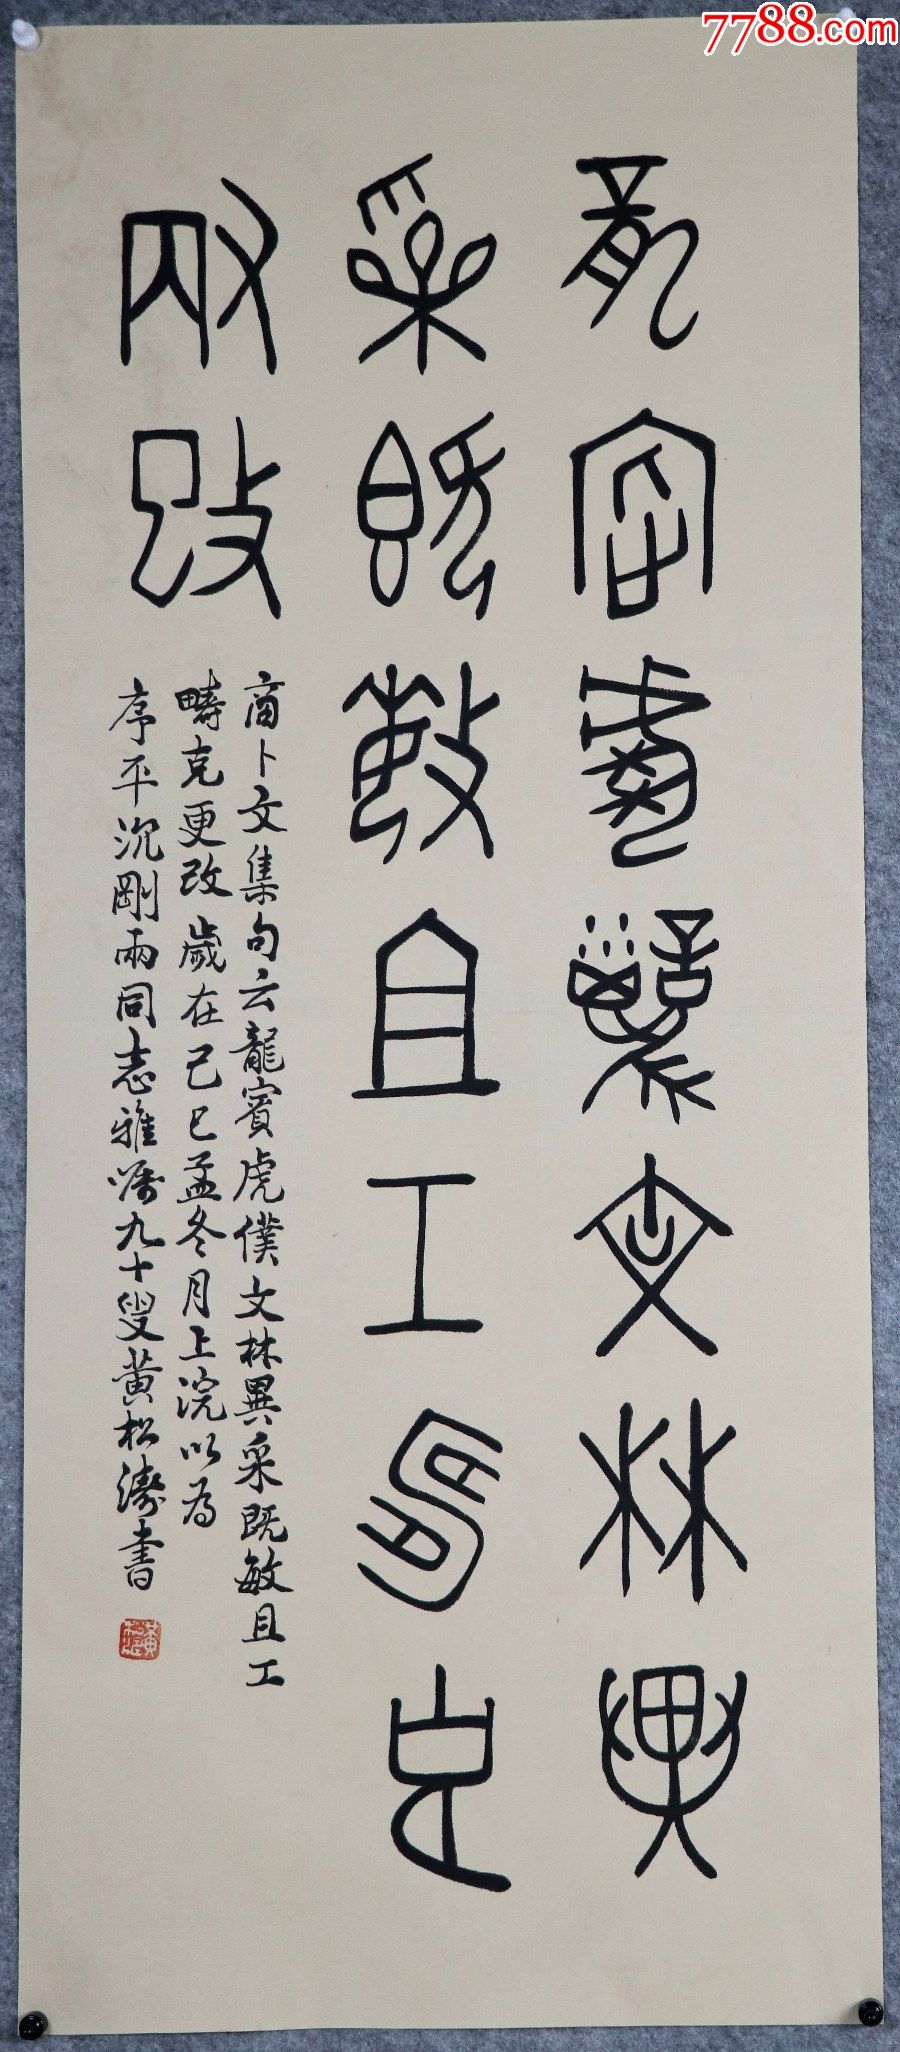 7788.com
龍賓虎僕文林異
采既敏且工疇克
更改
商卜文集句云龍賓虎僕文林異采既敏且工
疇克更改歲在己巳孟冬月上浣以為
序平沉剛兩同志雅囑九十叟黃松濤書